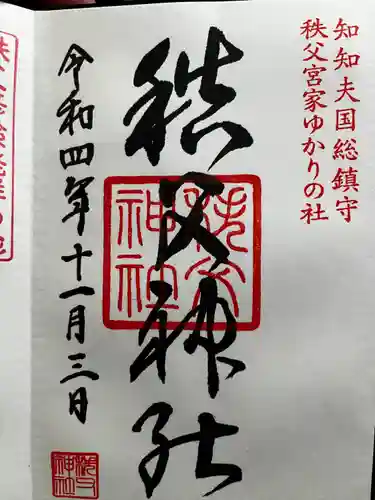 知知夫国総鎮守
秩父宮家ゆかりの社
秩父神社
秩父神社
令和四年十一月三日